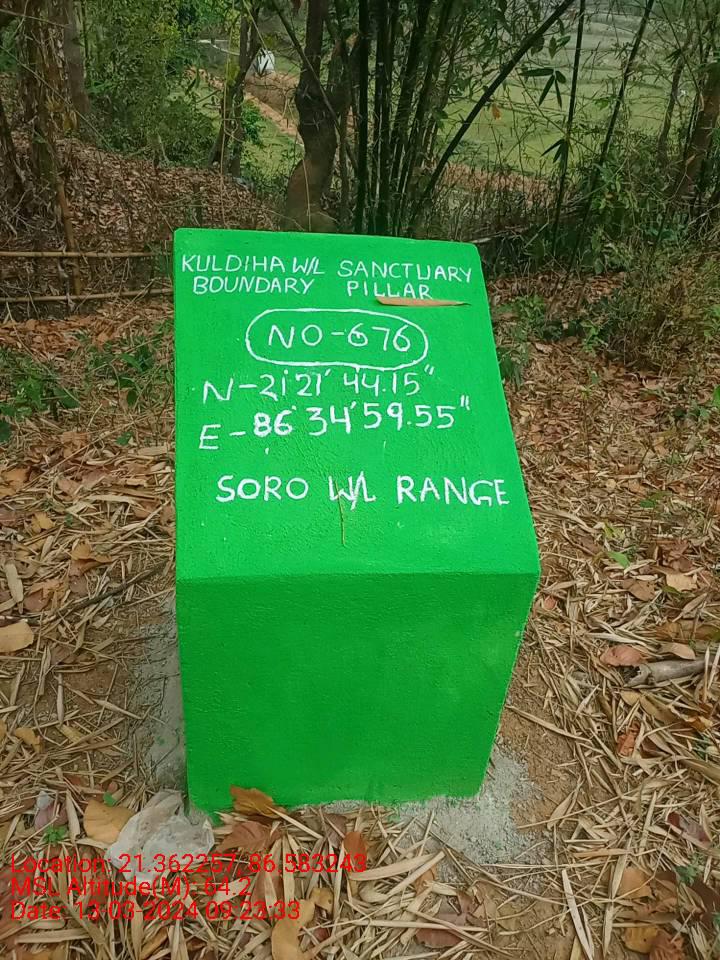 KULDIHA W/L SANCTUARY
BOUNDARY PILLAR
NO-676
N-21°21' 44.15"
E-86°34'59.55"
SORO W/L RANGE
Location: 21.362257, 86.583243
MSL Altitude(M): 64.2
Date: 13-03-2024 09:23:33